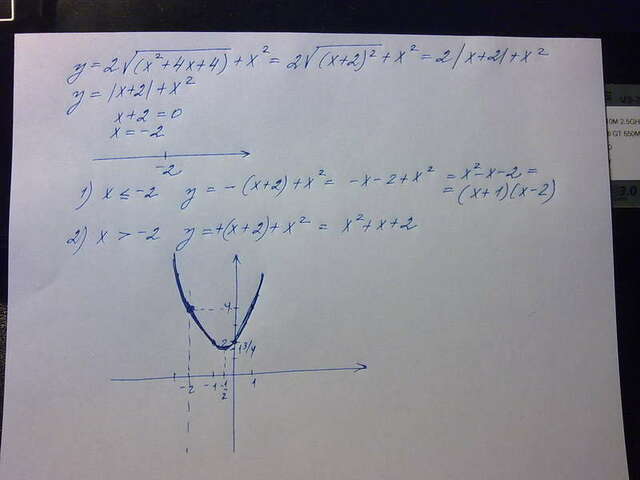 y = 2√(x²+4x+4) + x² = 2√(x+2)² + x² = 2|x+2| + x²
y = |x+2| + x²
x+2 = 0
x = -2
-2
1) x ≤ -2 y = -(x+2) + x² = -x-2+x² = x²-x-2 =
= (x+1)(x-2)
2) x > -2 y = +(x+2) + x² = x²+x+2
4
2
1 3/4
-2 -1 -1/2 1
3.0